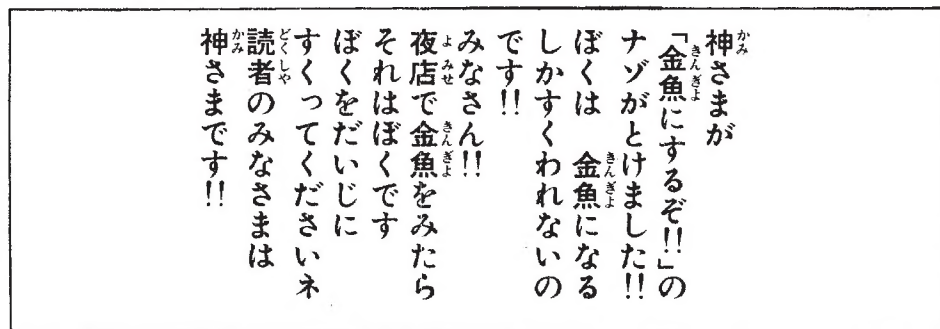 神さまが
「金魚にするぞ!!」の
ナゾがとけました!!
ぼくは　金魚になる
しかすくわれないの
です!!
みなさん!!
夜店で金魚をみたら
それはぼくです
ぼくをだいじに
すくってくださいネ
読者のみなさまは
神さまです!!